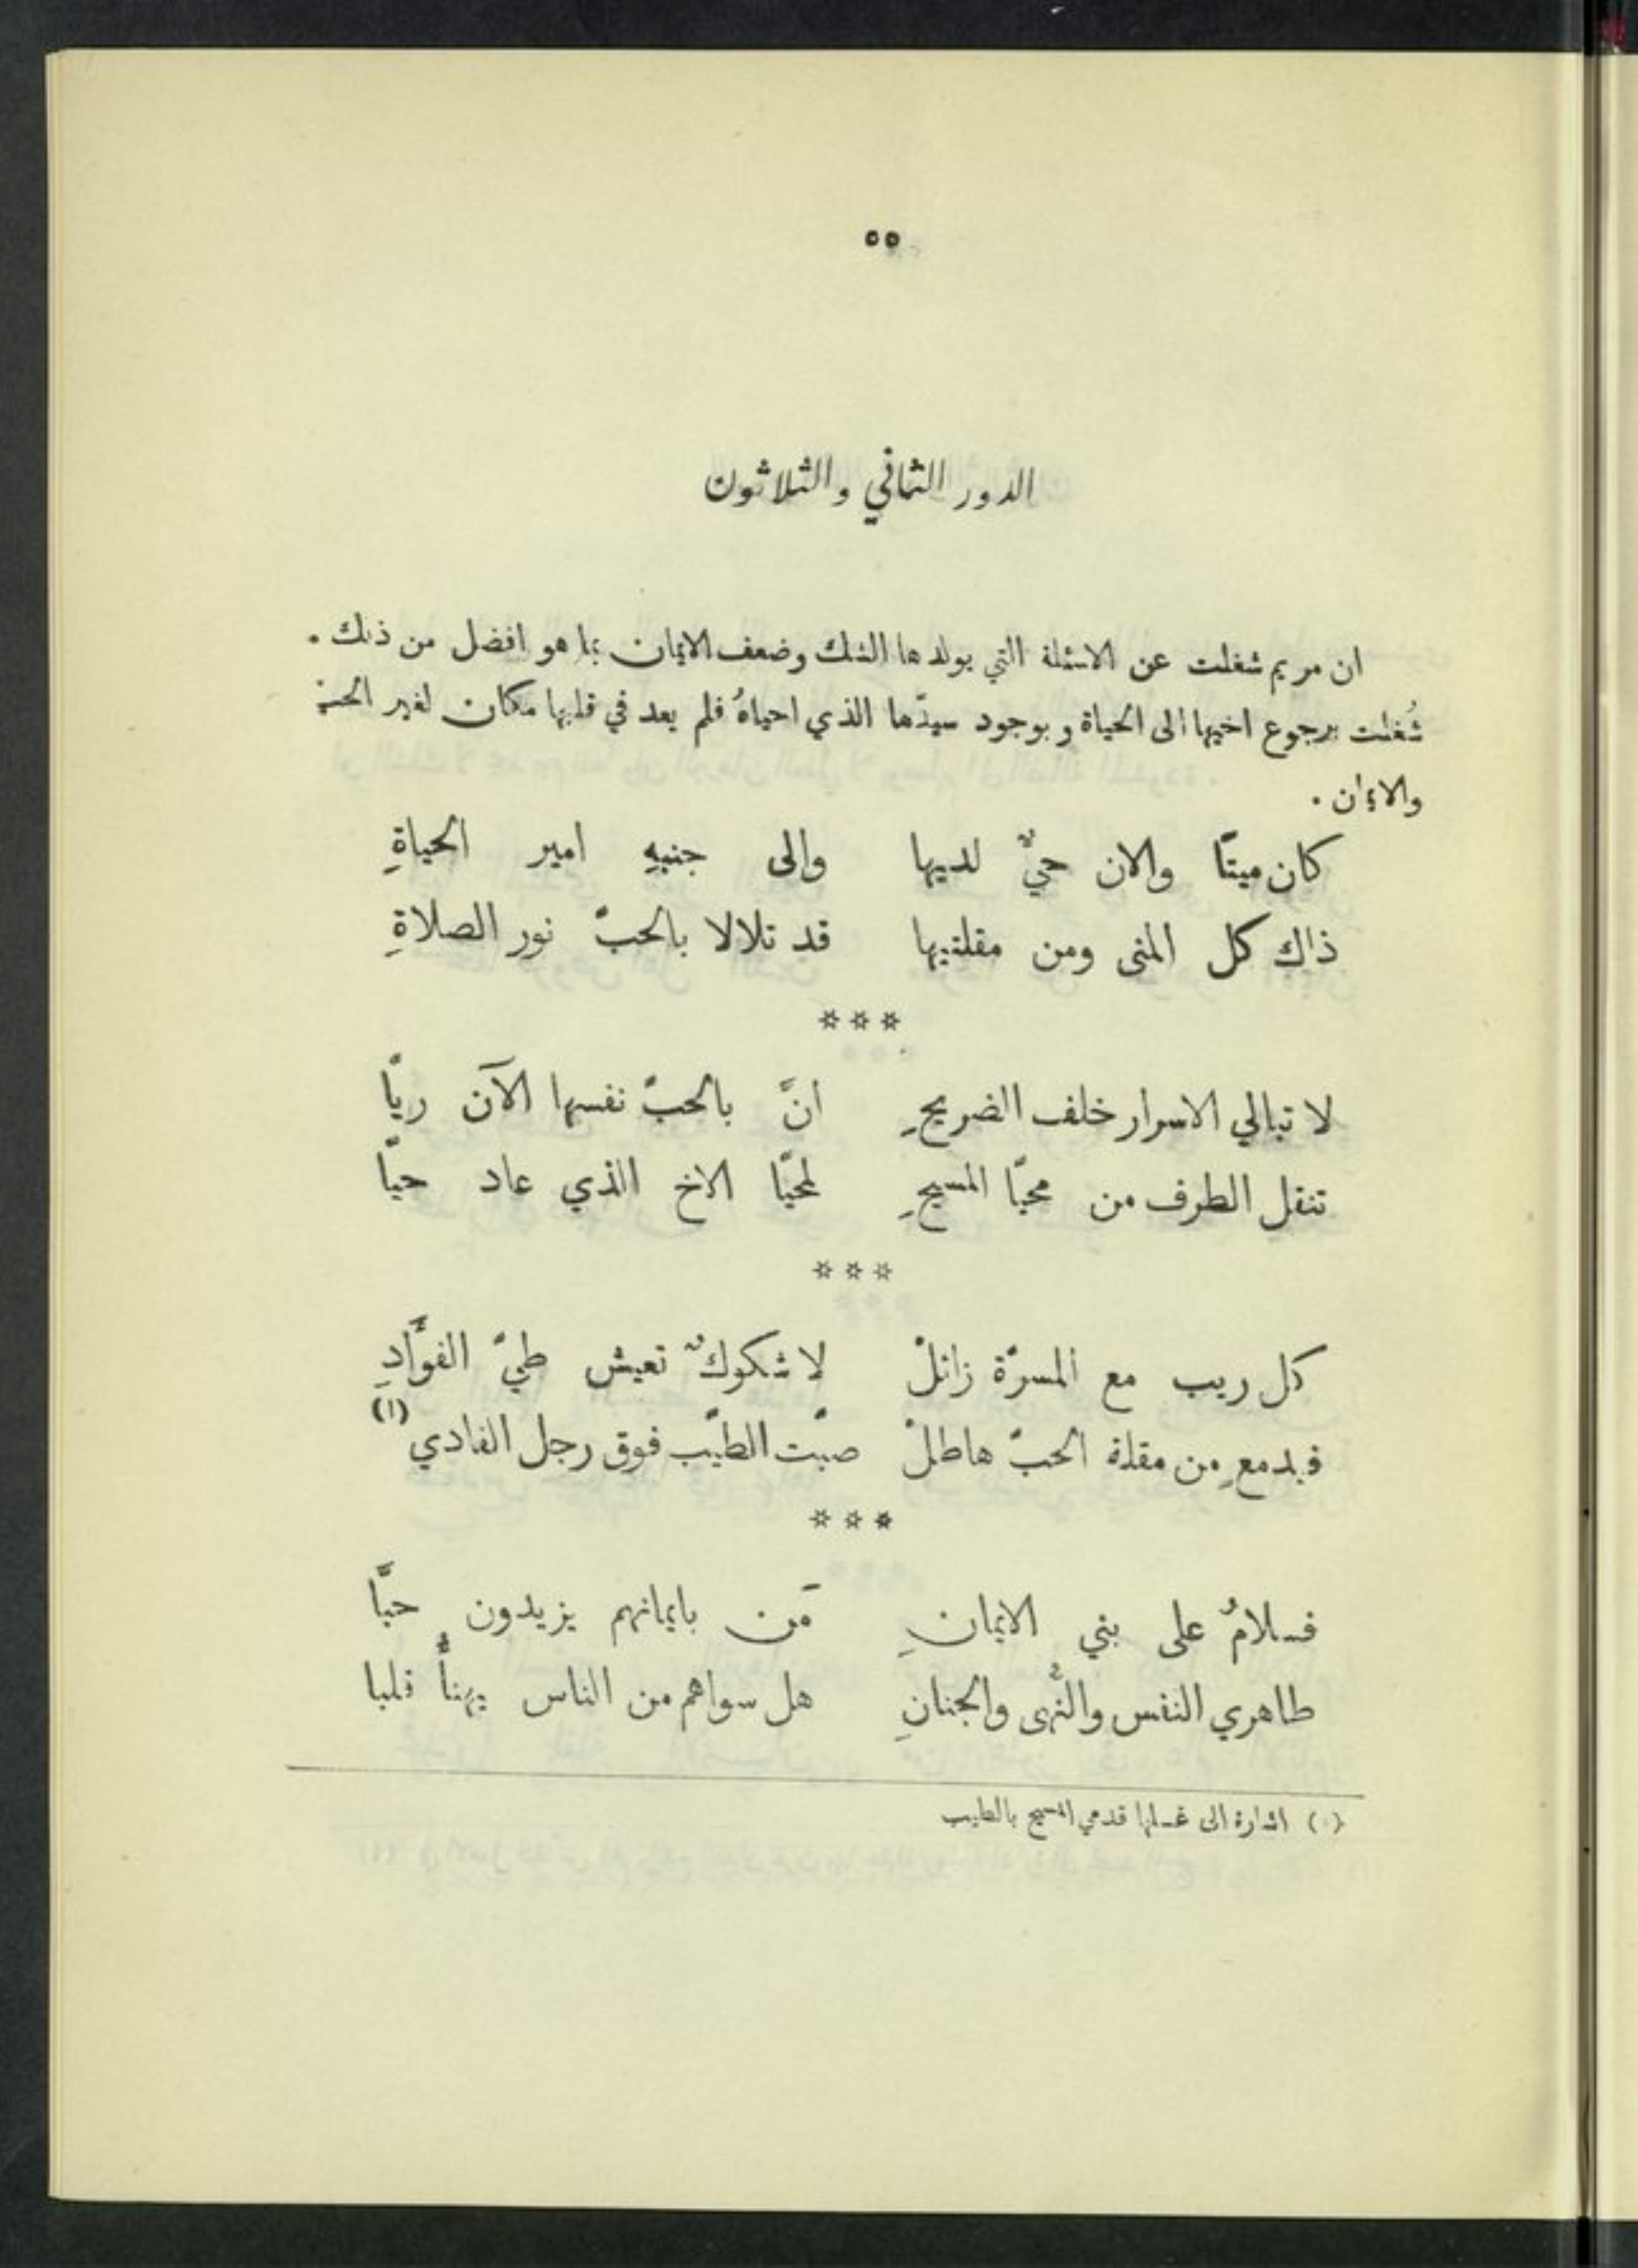 ٥٥
الدور الثاني والثلاثون
ان مريم شغلت عن الاسئلة التي يولدها الشك وضعف الايمان بما هو افضل من ذلك .
شُغلت برجوع اخيها الى الحياة وبوجود سيدّها الذي احياهُ فلم يعد في قلبها مكان لغير الحب
والايمان .
كان ميتًا والان حيٌّ لديها والى جنبهِ امير الحياةِ
ذاك كل المنى ومن مقلتيها قد تلالا بالحبّ نور الصلاةِ
***
لا تبالي الاسرار خلف الضريحِ انَّ بالحبّ نفسها الآن ريّا
تنقل الطرف من محيّا المسيحِ لمحيّا الاخ الذي عاد حيّا
***
كل ريب مع المسرّة زائلْ لا شكوكٌ تعيش طيّ الفؤَادِ
فبدمعٍ من مقلة الحبّ هاطلْ صبّت الطيّب فوق رجل الفادي (١)
***
فسلامٌ على بني الايمانِ مَن بايمانهم يزيدون حبّا
طاهري النفس والنُّهى والجنانِ هل سواهم من الناس يهنأُ قلبا
(١) اشارة الى غسلها قدمي المسيح بالطيب